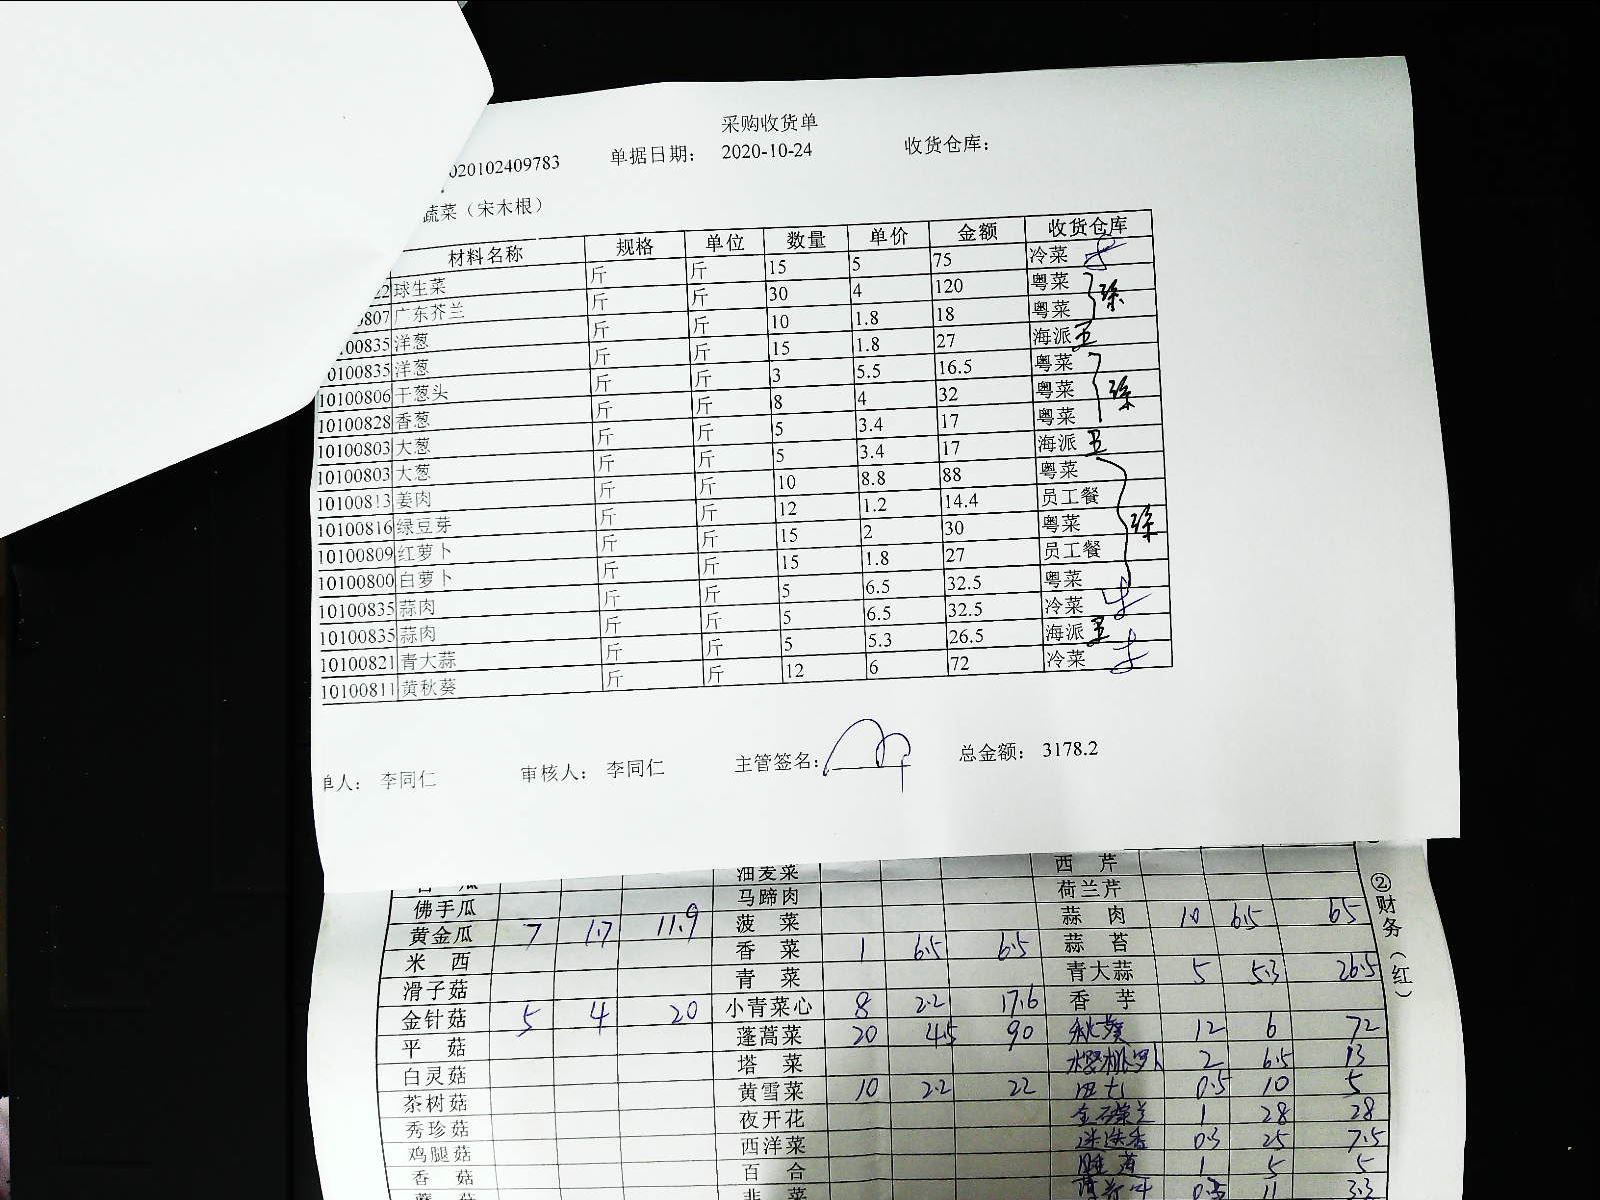 采购收货单
020102409783 单据日期： 2020-10-24 收货仓库：
蔬菜（宋木根）
材料名称 规格 单位 数量 单价 金额 收货仓库
22 球生菜 斤 斤 15 5 75 冷菜
0807 广东芥兰 斤 斤 30 4 120 粤菜
100835 洋葱 斤 斤 10 1.8 18 粤菜
0100835 洋葱 斤 斤 15 1.8 27 海派 王
10100806 干葱头 斤 斤 3 5.5 16.5 粤菜
10100828 香葱 斤 斤 8 4 32 粤菜
10100803 大葱 斤 斤 5 3.4 17 粤菜
10100803 大葱 斤 斤 5 3.4 17 海派 王
10100813 姜肉 斤 斤 10 8.8 88 粤菜
10100816 绿豆芽 斤 斤 12 1.2 14.4 员工餐
10100809 红萝卜 斤 斤 15 2 30 粤菜
10100800 白萝卜 斤 斤 15 1.8 27 员工餐
10100835 蒜肉 斤 斤 5 6.5 32.5 粤菜
10100835 蒜肉 斤 斤 5 6.5 32.5 冷菜
10100821 青大蒜 斤 斤 5 5.3 26.5 海派 王
10100811 黄秋葵 斤 斤 12 6 72 冷菜
单人： 李同仁 审核人： 李同仁 主管签名： 总金额： 3178.2
油麦菜 西芹
佛手瓜 马蹄肉 荷兰芹
黄金瓜 7 1.7 11.9 菠菜 蒜肉 10 6.5 65
米西 香菜 1 6.5 6.5 蒜苔
滑子菇 青菜 青大蒜 5 5.3 26.5
金针菇 5 4 20 小青菜心 8 2.2 17.6 香芋
平菇 蓬蒿菜 20 4.5 90 秋葵 12 6 72
白灵菇 塔菜 樱桃萝卜 2 6.5 13
茶树菇 黄雪菜 10 2.2 22 0.5 10 5
秀珍菇 夜开花 1 28 28
鸡腿菇 西洋菜 迷迭香 0.3 25 7.5
香菇 百合 1 5 5
韭菜 11 3.3
②财务（红）